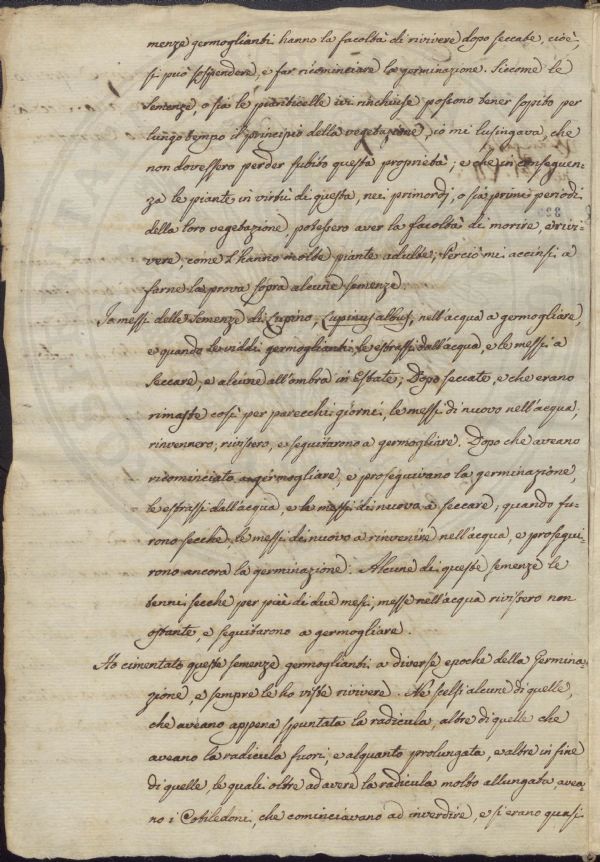 menze germoglianti hanno la facoltà di rivivere dopo seccate, cioè,
si può sospendere, e far ricominciare la germinazione. Siccome le
Semenze, o sia le pianticelle ivi rinchiuse possono tener sopito per
lungo tempo il principio della vegetazione, io mi lusingava, che
non dovessero perder subito questa proprietà; e che in conseguen-
za le piante in virtù di questa, nei primordj, o sia primi periodi
della loro vegetazione, potessero aver la facoltà di morire, e rivi-
vere, come l'hanno molte piante adulte; Perciò mi accinsi a
farne la prova sopra alcune semenze.
Io messi delle Semenze di Lupino, Lupinus albus, nell'acqua a germogliare,
e quando le viddi germoglianti, le estrassi dall'acqua, e le messi a
seccare, e alcune all'ombra in Estate; Dopo seccate, e che erano
rimaste così per parecchi giorni, le messi di nuovo nell'acqua;
rinvennero, rivissero, e seguitarono a germogliare. Dopo che aveano
ricominciato a germogliare, e proseguivano la germinazione,
le estrassi dall'acqua, e le messi di nuovo a seccare; quando fu-
rono secche, le messi di nuovo a rinvenire nell'acqua, e prosegui-
rono ancora la germinazione. Alcune di queste semenze le
tenni secche per più di due mesi, messe nell'acqua rivissero non
ostante, e seguitarono a germogliare.
Ho cimentato queste semenze germoglianti a diverse epoche della Germina-
zione, e sempre le ho viste rivivere. Ne scelsi alcune di quelle,
che aveano appena spuntata la radicula, altre di quelle che
aveano la radicula fuori, e alquanto prolungata, e altre in fine
di quelle, le quali oltre ad avere la radicula molto allungata, avea-
no i Cotiledoni, che cominciavano ad inverdire, e si erano quasi